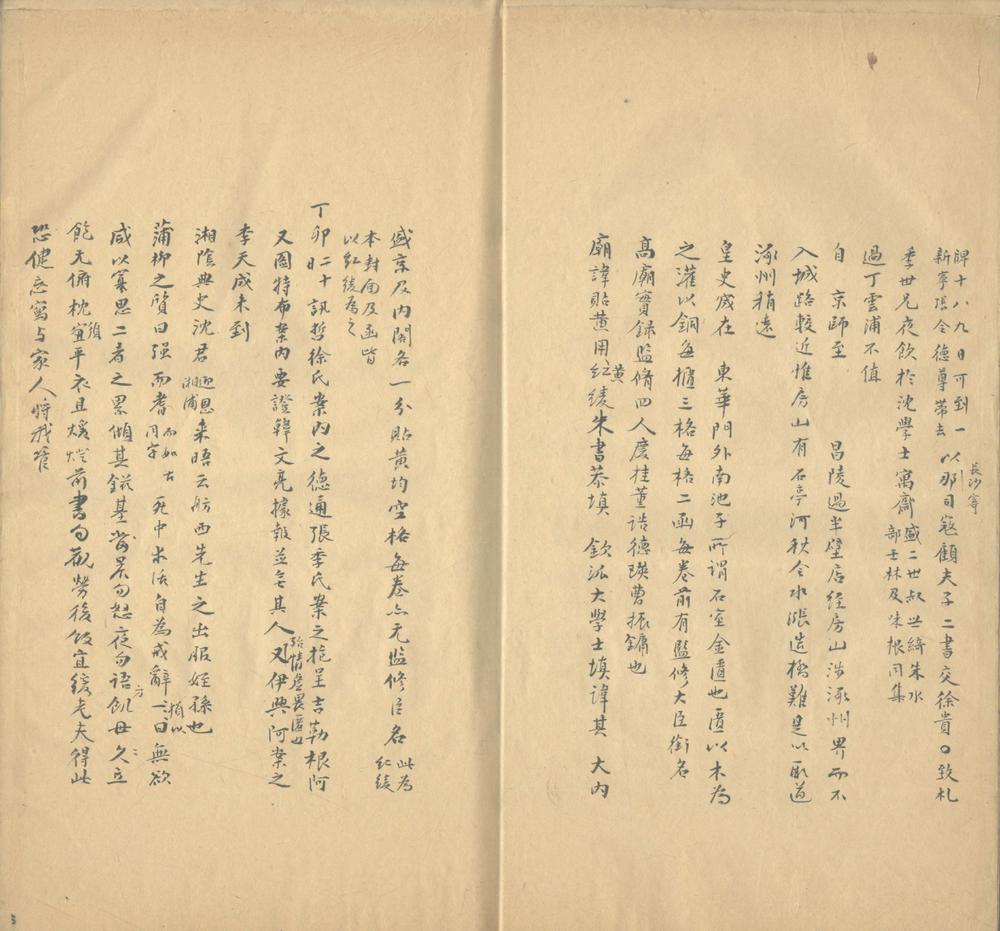 牌十八九日可到一
新寧張令德尊帶去
以那司寇顧夫子二書交徐貴口致札
長沙寄
季世兄夜飲於沈學士寓齋
盛二世叔
朱水
部士林及朱根同集
過丁雲浦不值
自 京師至 昌陵過半壁店經房山涉涿州界而不
入城路較近惟房山有石亭河秋令水漲造橋難是以取道
涿州稍遠
皇史宬在 東華門外南池子所謂石室金匱也匱以木為
之灌以銅每櫃三格每格二函每卷前有監修大臣銜名
高廟實録監脩四人慶桂董誥德瑛曹振鏞也
廟諱貼黄用紅綾朱書恭填 欽派大學士填諱其 大内
黄
盛京及内閣各一分貼黄均空格每卷亦无監修臣名
此為
紅綾
本封面及函皆
以紅綾為之
丁卯二十訊悊徐氏案内之德通張季氏案之抱呈吉勒根阿
又圖特布案内要證韓文亮據報並無其人
又伊興阿案之
李天成未到
湘陰典史沈君
迎恩
湘浦
来晤云舫西先生之出服姪孫也
蒲柳之質曰强而耆
同字
死中求活自為戒辭
一曰無欲
咸以寡思二者之累傾其鎡基
夜勿語飢毋久立
飽无俯枕
須
宜平衣且煖
前書勿觀勞後飯宜緩老夫得此
恐健忘寫与家人